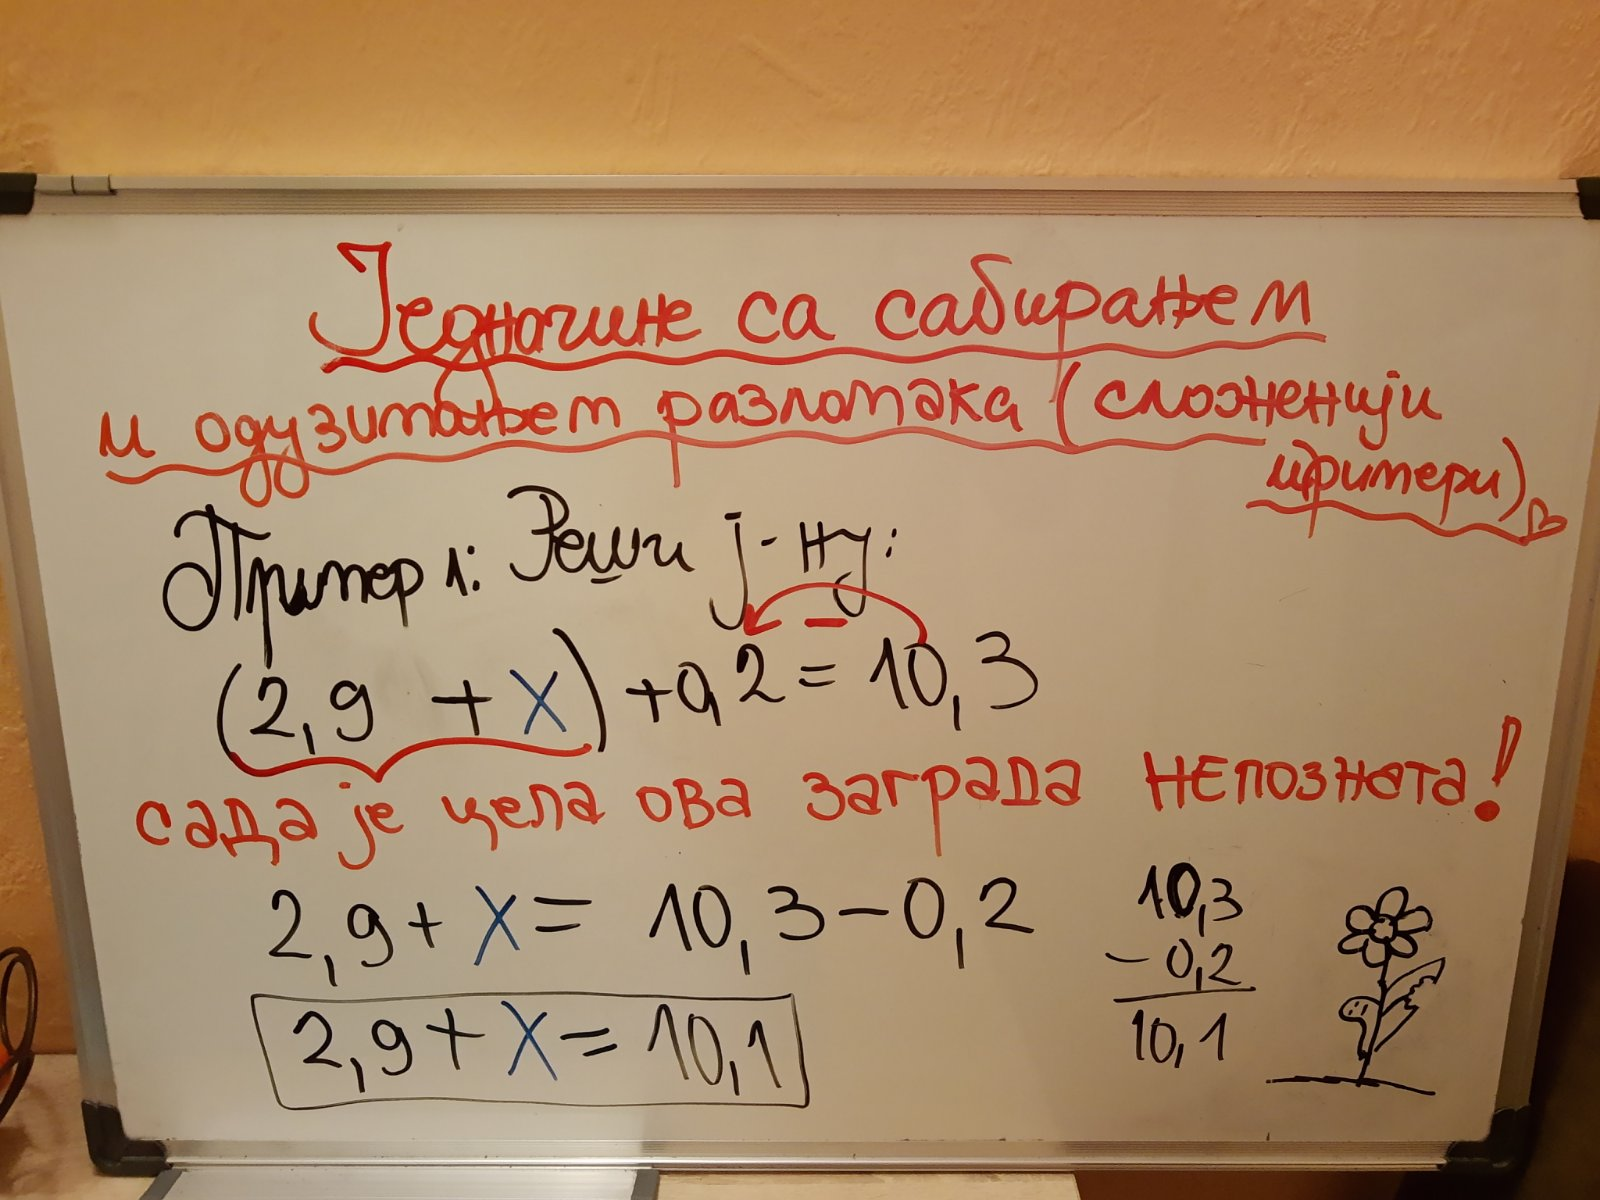 Једначине са сабирањем
и одузимањем разломака (сложенији
примери)
Пример 1: Реши ј-ну:
(2,9 + x) + 0,2 = 10,3
сада је цела ова заграда НЕПОЗНАТА!
2,9 + x = 10,3 - 0,2
2,9 + x = 10,1
10,3
- 0,2
10,1